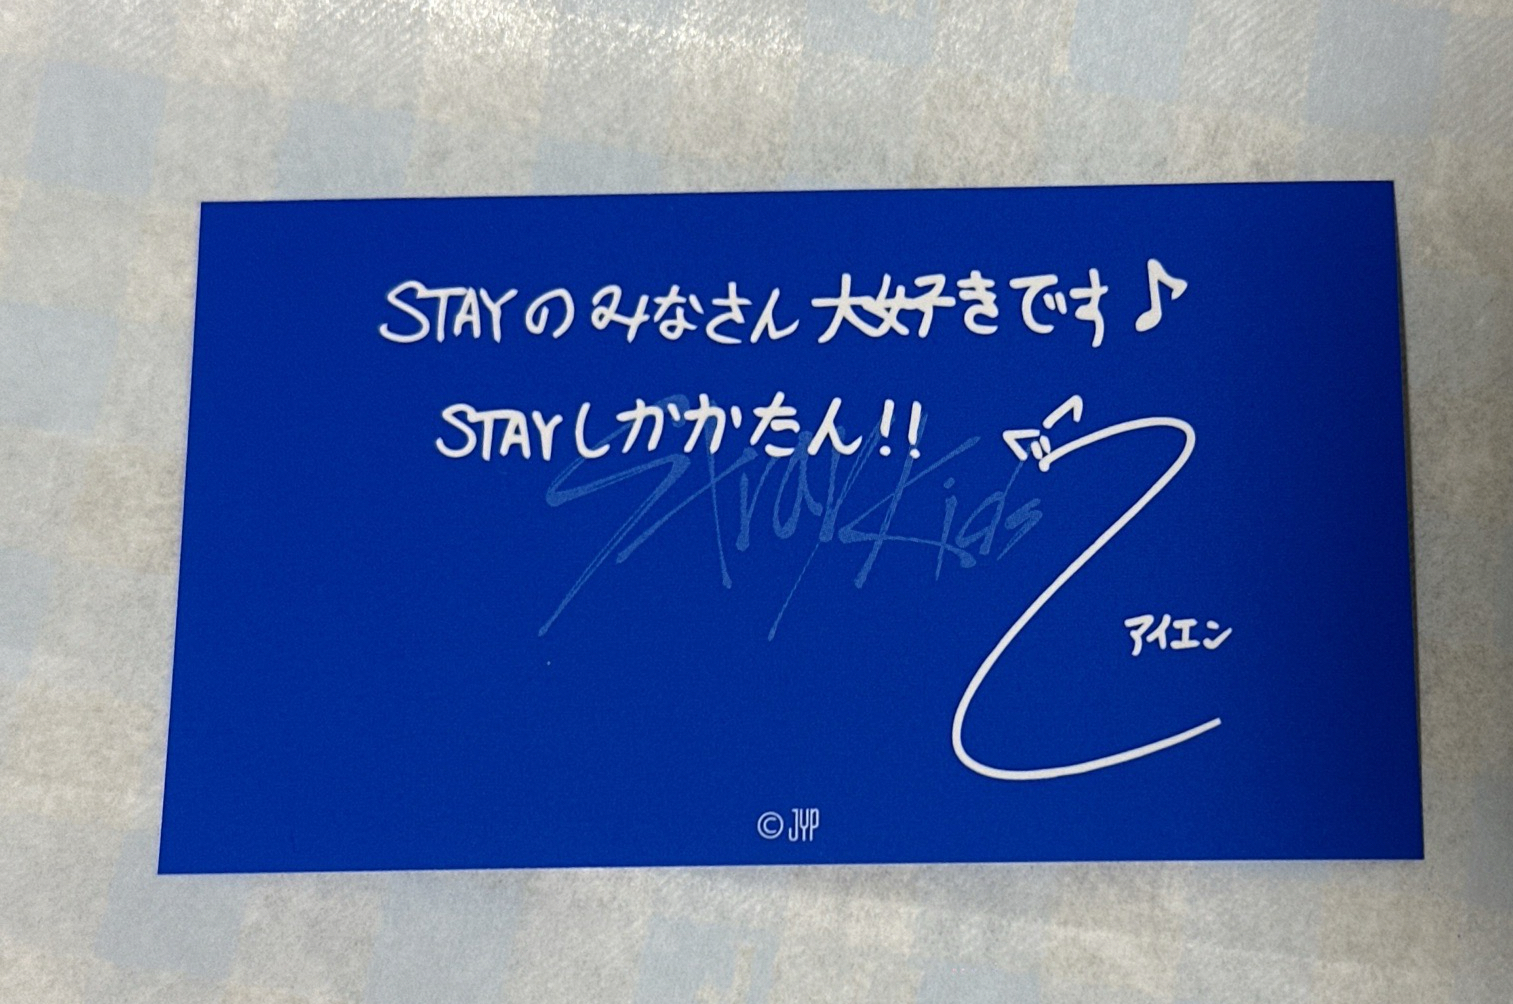 STAYのみなさん大好きです♪
STAYしかかたん!!
Stray Kids
アイエン
© JYP